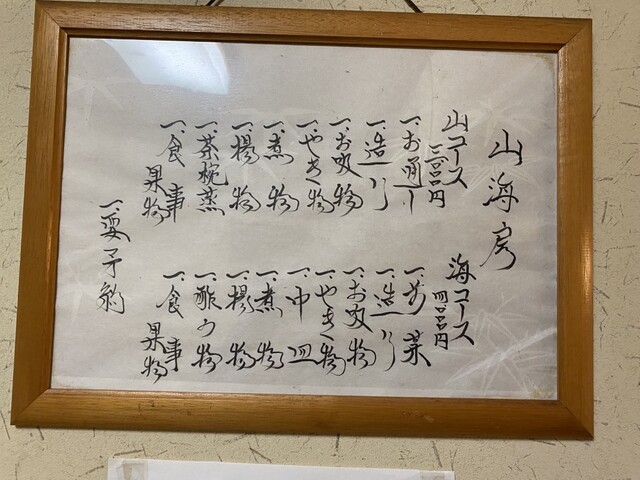 山海房
山コース
三〇〇〇円
一、お通し
一、造り
一、お吸物
一、やき物
一、煮物
一、揚物
一、茶椀蒸
一、食事
果物
海コース
四〇〇〇円
一、前菜
一、造り
一、お吸物
一、やき物
一、中皿
一、煮物
一、揚物
一、酢の物
一、食事
果物
一要予約